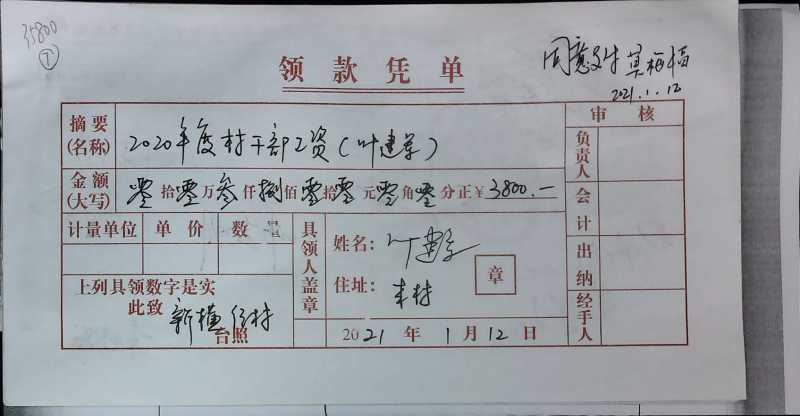 35800
①
领款凭单
同意支付 莫柏福
2021.1.12
摘要(名称) 2020年度村干部工资(叶建军)
审核
金额(大写) 零拾零万叁仟捌佰零拾零元零角零分正¥3800.一
负责人
会计
出纳
经手人
计量单位 单价 数量
具领人盖章
姓名: 叶建军
住址: 本村
章
上列具领数字是实
此致 新横 村
台照
2021年1月12日